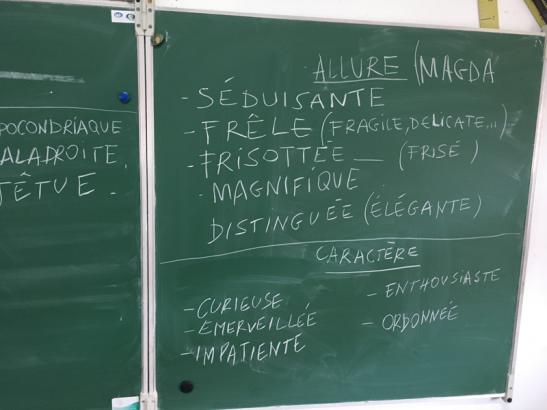 POCONDRIAQUE
ALADROITE,
TÊTUE.
ALLURE (MAGDA
- SÉDUISANTE
- FRÊLE (FRAGILE, DELICATE...)
- FRISOTTÉE __ (FRISÉ)
- MAGNIFIQUE
DISTINGUÉE (ÉLÉGANTE)
CARACTÈRE
- CURIEUSE
- ÉMERVEILLÉE
- IMPATIENTE
- ENTHOUSIASTE
- ORDONNÉE